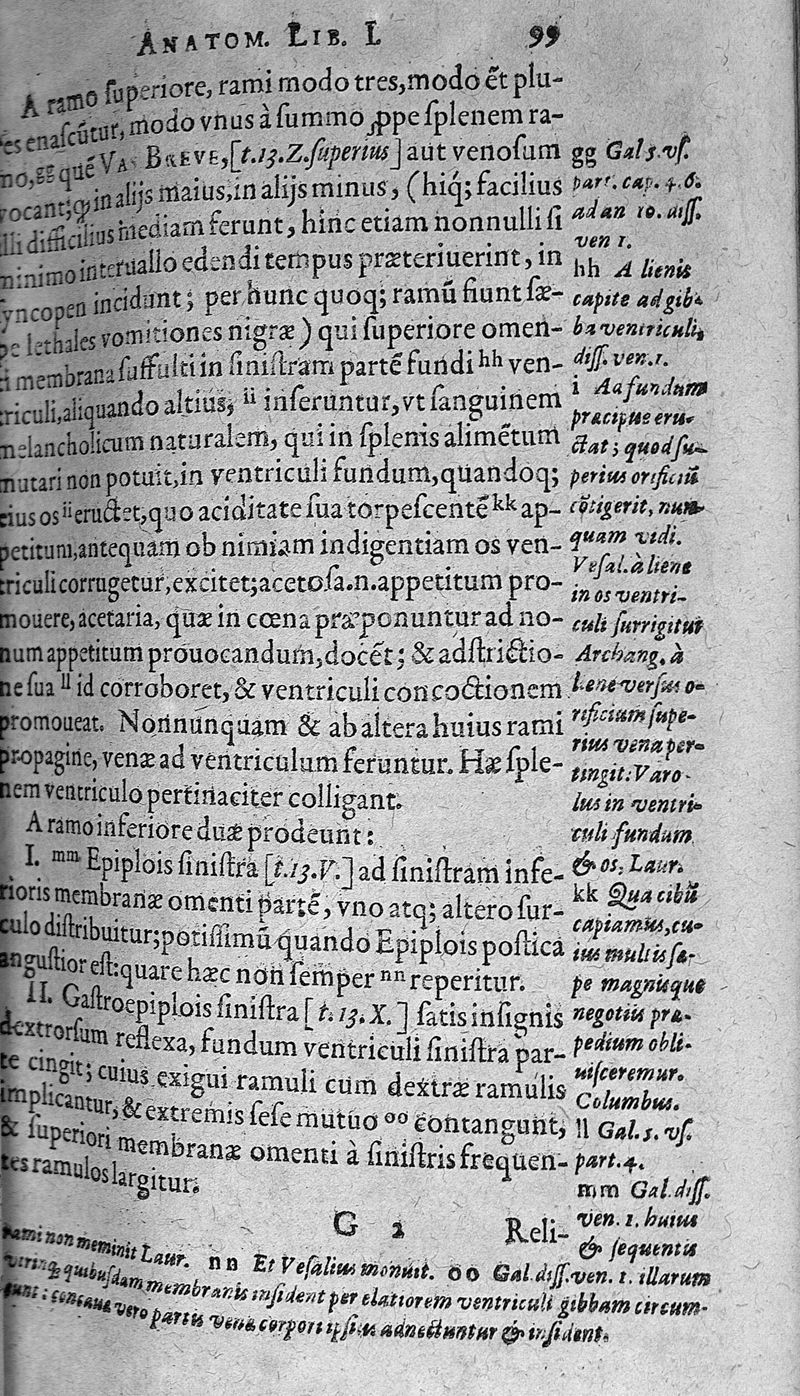 ANATOM. LIB. I. 99
A ramo ſuperiore, rami modo tres, modo ẽt plu-
res enaſcũtur, modo vnus à ſummo ꝓppe ſplenem ra-
mo, gg quẽ VAS BREVE, [t.13.Z.ſuperius] aut venoſum
vocant; q in alijs maius, in alijs minus, (hiq́; facilius
illi difficilius inediam ferunt, hinc etiam nonnulli ſi
minimo interuallo edendi tempus præteriuerint, in
ſyncopen incidunt; per hunc quoq; ramũ fiunt ſæ-
pe lethales vomitiones nigræ) qui ſuperiore omen-
ti membrana ſuffulti in ſiniſtram partẽ fundi hh ven-
triculi, aliquando altius, ii inſeruntur, vt ſanguinem
melancholicum naturalem, qui in ſplenis alimẽtum
mutari non potuit, in ventriculi fundum, quandoq;
eius os ii eructet, quo aciditate ſua torpeſcentẽ kk ap-
petitum, antequam ob nimiam indigentiam os ven-
triculi corrugetur, excitet; acetoſa .n. appetitum pro-
mouere, acetaria, quæ in cœna præponuntur ad no-
num appetitum prouocandum, docẽt; & adſtrictio-
ne ſua ll id corroboret, & ventriculi concoctionem
promoueat. Nonnunquam & ab altera huius rami
propagine, venæ ad ventriculum feruntur. Hæ ſple-
nem ventriculo pertinaciter colligant.
A ramo inferiore duæ prodeunt:
I. mm Epiplois ſiniſtra [t.13.V.] ad ſiniſtram infe-
rioris membranæ omenti partẽ, vno atq; altero ſur-
culo diſtribuitur; potiſſimũ quando Epiplois poſtica
anguſtior eſt: quare hæc non ſemper nn reperitur.
II. Gaſtroepiplois ſiniſtra [t.13.X.] ſatis inſignis
dextrorſum reflexa, fundum ventriculi ſiniſtra par-
te cingit; cuius exigui ramuli cum dextræ ramulis
implicantur, & extremis ſeſe mutuo oo contangunt,
& ſuperiori membranæ omenti à ſiniſtris frequen-
tes ramulos largitur.
G 2 Reli-
gg Gal 5. vſ.
part. cap. 4. 6.
ad an 10. diſſ.
ven 1.
hh A lienis
capite ad gib-
ba ventriculi,
diſſ. ven. 1.
i Aa fundum
præcipue eru-
ctat; quod ſu-
perius orificiũ
cõtigerit, nun-
quam vidi.
Veſal. à liene
in os ventri-
culi ſurrigitur
Archang. à
liene verſus o-
rificium ſupe-
rius vena per-
tingit: Varo-
lus in ventri-
culi fundum
& os. Laur.
kk Qua cibũ
capiamus, cu-
ius multis ſæ-
pe magniſque
negotiis præ-
pedium obli-
uiſceremur.
Columbus.
ll Gal. 5. vſ.
part. 4.
mm Gal. diſſ.
ven. 1. huius
& ſequentis
rami non meminit Laur. nn Et Veſalius monuit. oo Gal. diſſ. ven. 1. illarum
quibuſdam membranis inſident per elatiorem ventriculi gibbam circum-
vero partis venæ corpori ipſius adnectuntur & inſident.